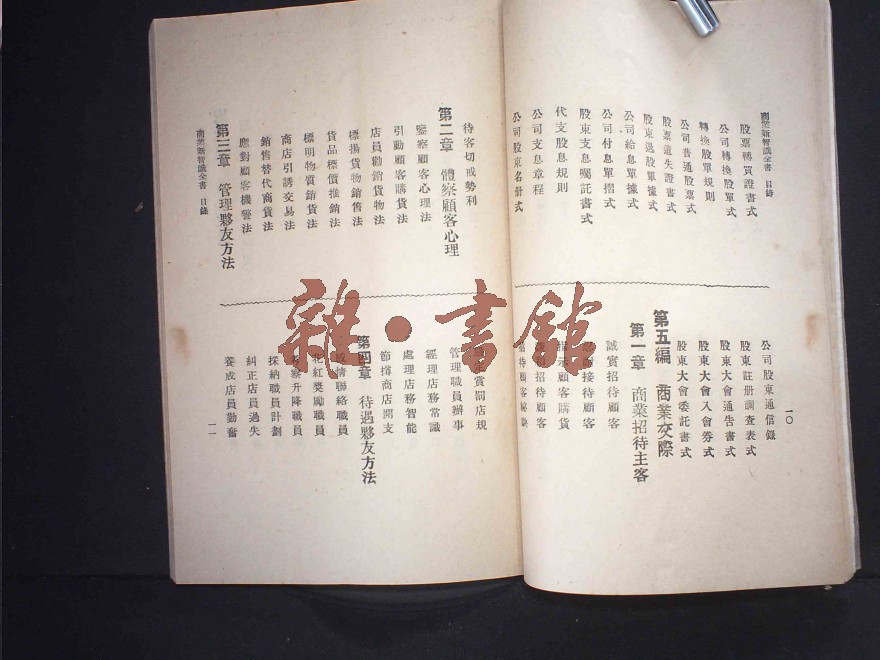 商業新智識全書 目錄
股票轉買證書式
公司轉換股單式
轉換股單規則
公司普通股票式
股票遺失證書式
股東退股單據式
公司給息單據式
公司付息單摺式
股東支息囑託書式
代支股息規則
公司支息章程
公司股東名冊式
公司股東通信錄
股東註册調查表式
股東大會通告書式
股東大會入會券式
股東大會委託書式
第五編 商業交際
第一章 商業招待主客
誠實招待顧客
接待顧客
顧客購貨
招待顧客
一〇
待客切戒勢利
第二章 體察顧客心理
鑒察顧客心理法
引動顧客購貨法
店員勸銷貨物法
標揚貨物銷售法
貨品標價推銷法
標明物質銷貨法
商店引誘交易法
銷售替代商貨法
應對顧客機警法
第三章 管理夥友方法
商業新智識全書 目錄
賞罰店規
管理職員辦事
經理店務常識
處理店務智能
節撙商店開支
第四章 待遇夥友方法
情聯絡職員
花紅獎勵職員
察升降職員
採納職員計劃
糾正店員過失
養成店員勤奮
一一
雜·書館